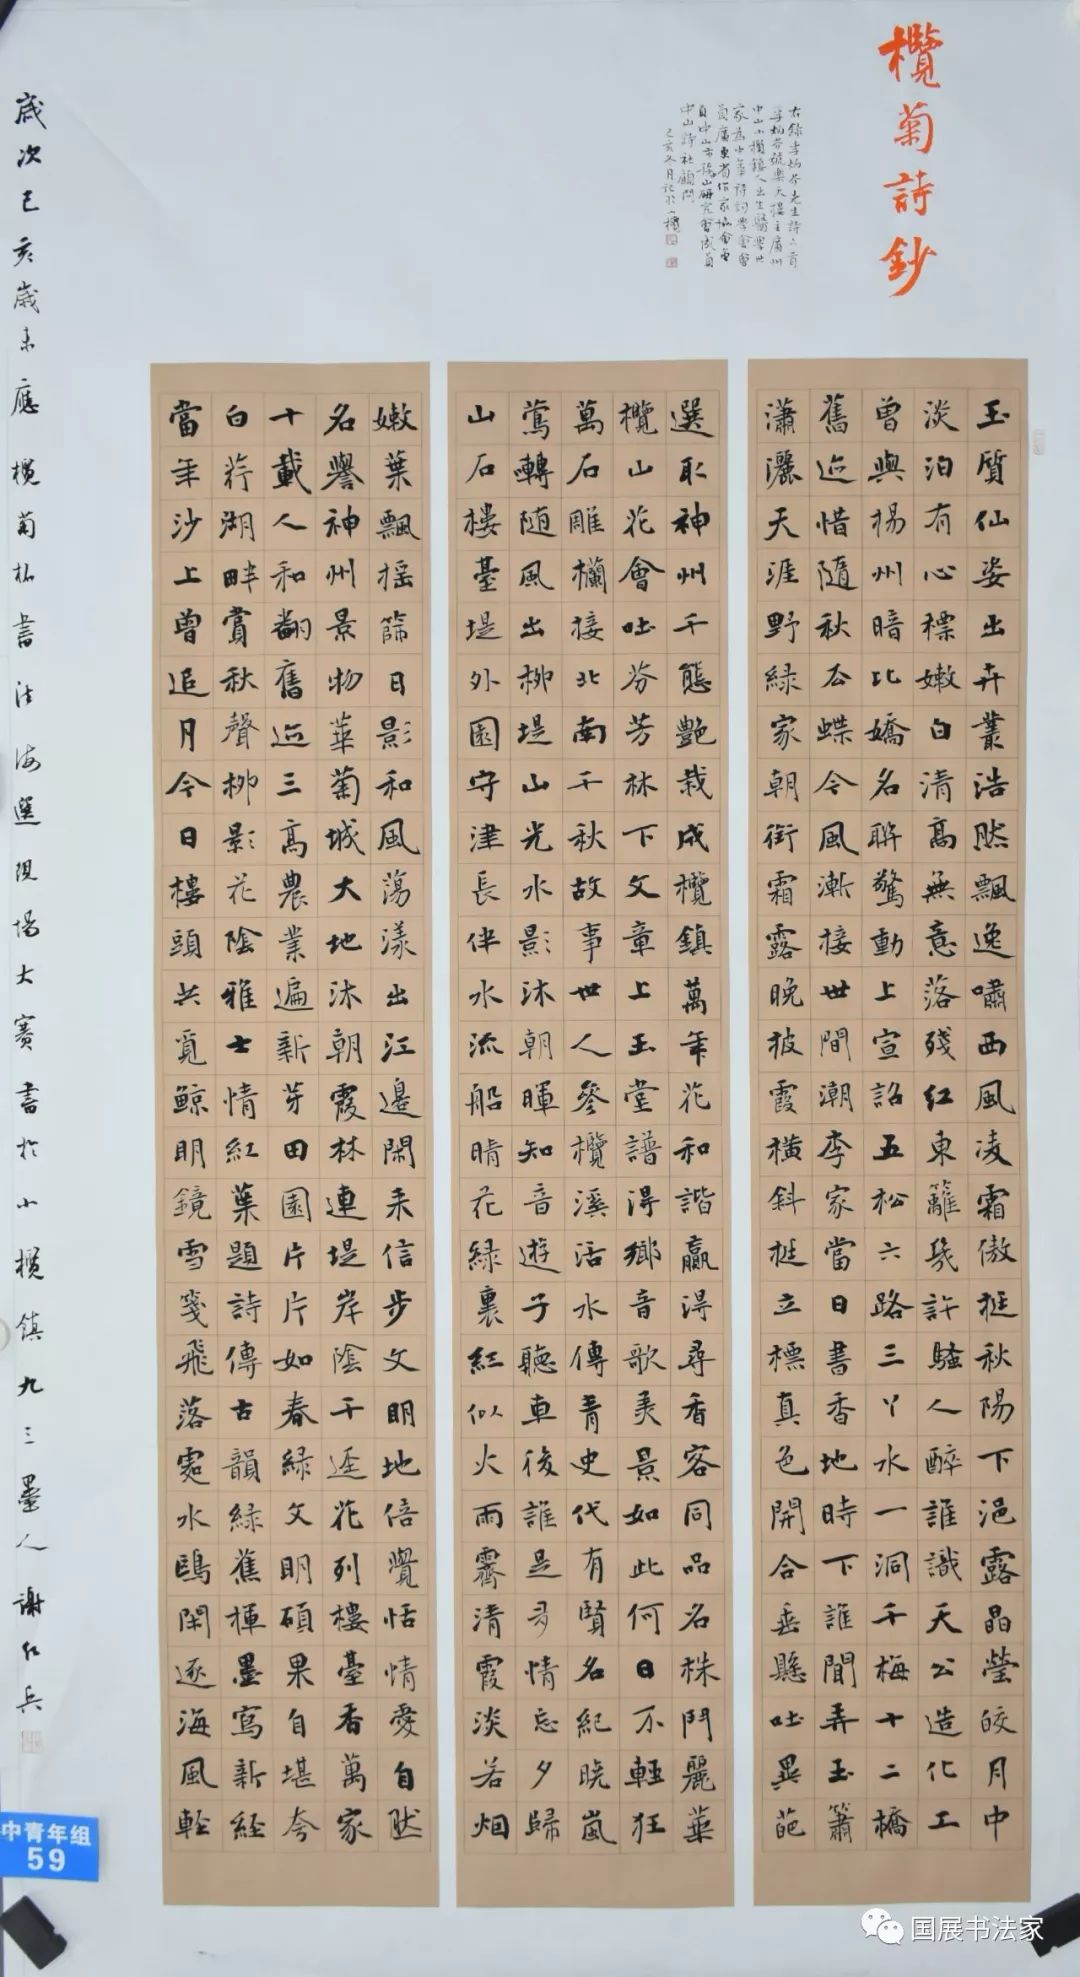 欖菊詩鈔
右錄李炳芬先生詩六首
李炳芬號樂天樓主廣州
中山小欖鎮人出生醫學世
家為中華詩詞學會會
員廣東省作家協會會
員中山市詩山研究會成員
中山詩社顧問
己亥冬月記於小欖
玉質仙姿出卉叢浩然飄逸嘯西風凌霜傲挺秋陽下浥露晶瑩皎月中
淡泊有心標嫩白清高無意落殘紅東籬幾許騷人醉誰識天公造化工
曾與楊州暗比嬌名聯驚動上宣詔五松六路三丫水一洞千梅十二橋
舊迹惜隨秋公蝶令風漸接世間潮李家當日書香地時下誰聞弄玉簫
瀟灑天涯野綠家朝銜霜露晚披霞橫斜挺立標真色開合垂懸吐異葩
選取神州千態艷栽成欖鎮萬年花和諧贏得尋香客同品名株鬥麗華
欖山花會吐芬芳林下文章上玉堂譜得鄉音歌美景如此何日不輕狂
萬石雕欄接北南千秋故事世人參欖溪活水傳青史代有賢名紀曉嵐
鶯轉隨風出柳堤山光水影沐朝暉知音遊子聽車後誰是多情忘夕歸
山石樓臺堤外園守津長伴水流船晴花綠裏紅似火雨霽清霞淡若烟
嫩葉飄搖篩日影和風蕩漾出江邊閑來信步文明地倍覺恬情愛自然
名譽神州景物華菊城大地沐朝霞林連堤岸陰千迳花列樓臺香萬家
十載人和翻舊迹三高農業遍新芽田園片片如春綠文明碩果自堪夸
白荇湖畔賞秋聲柳影花陰雅士情紅葉題詩傳古韻綠蕉揮墨寫新經
當年沙上曾追月今日樓頭共覓鯨明鏡雪箋飛落處水鷗閑逐海風輕
歲次己亥歲末應欖菊杯書法海選現場大賽書於小欖鎮九三墨人謝紅兵
中青年組
59
国展书法家